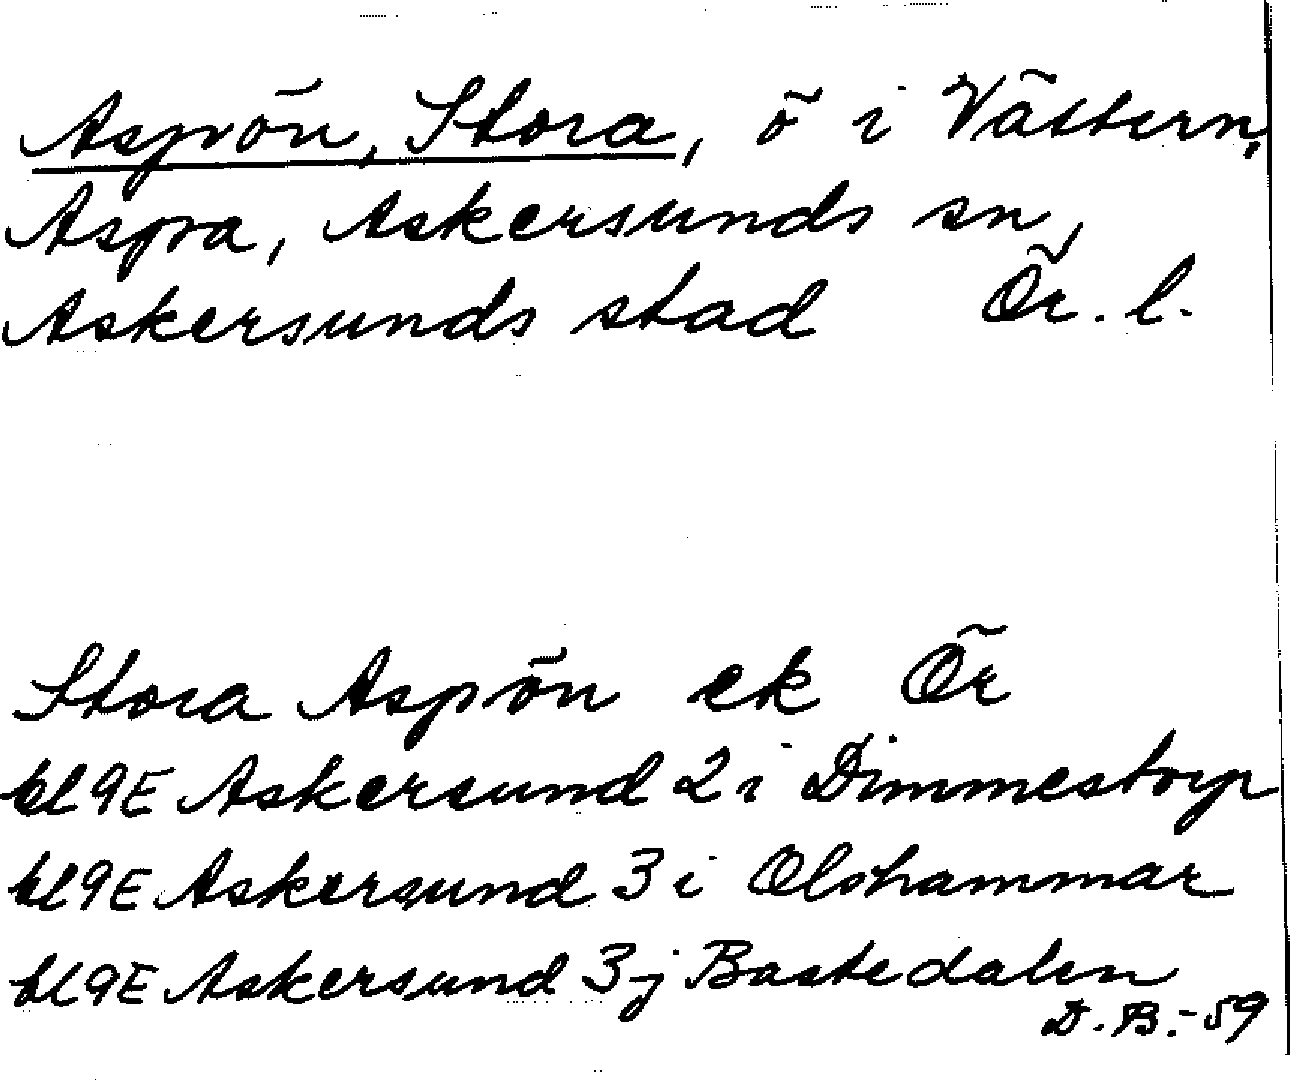 Aspön, Stora, ö i Vättern,
Aspa, Askersunds sn,
Askersunds stad Ör. l.
Stora Aspön ek Ör
bl 9E Askersund 2 i Dimmestorp
bl 9E Askersund 3 i Olshammar
bl 9E Askersund 3 j Bastedalen
D.B.-59